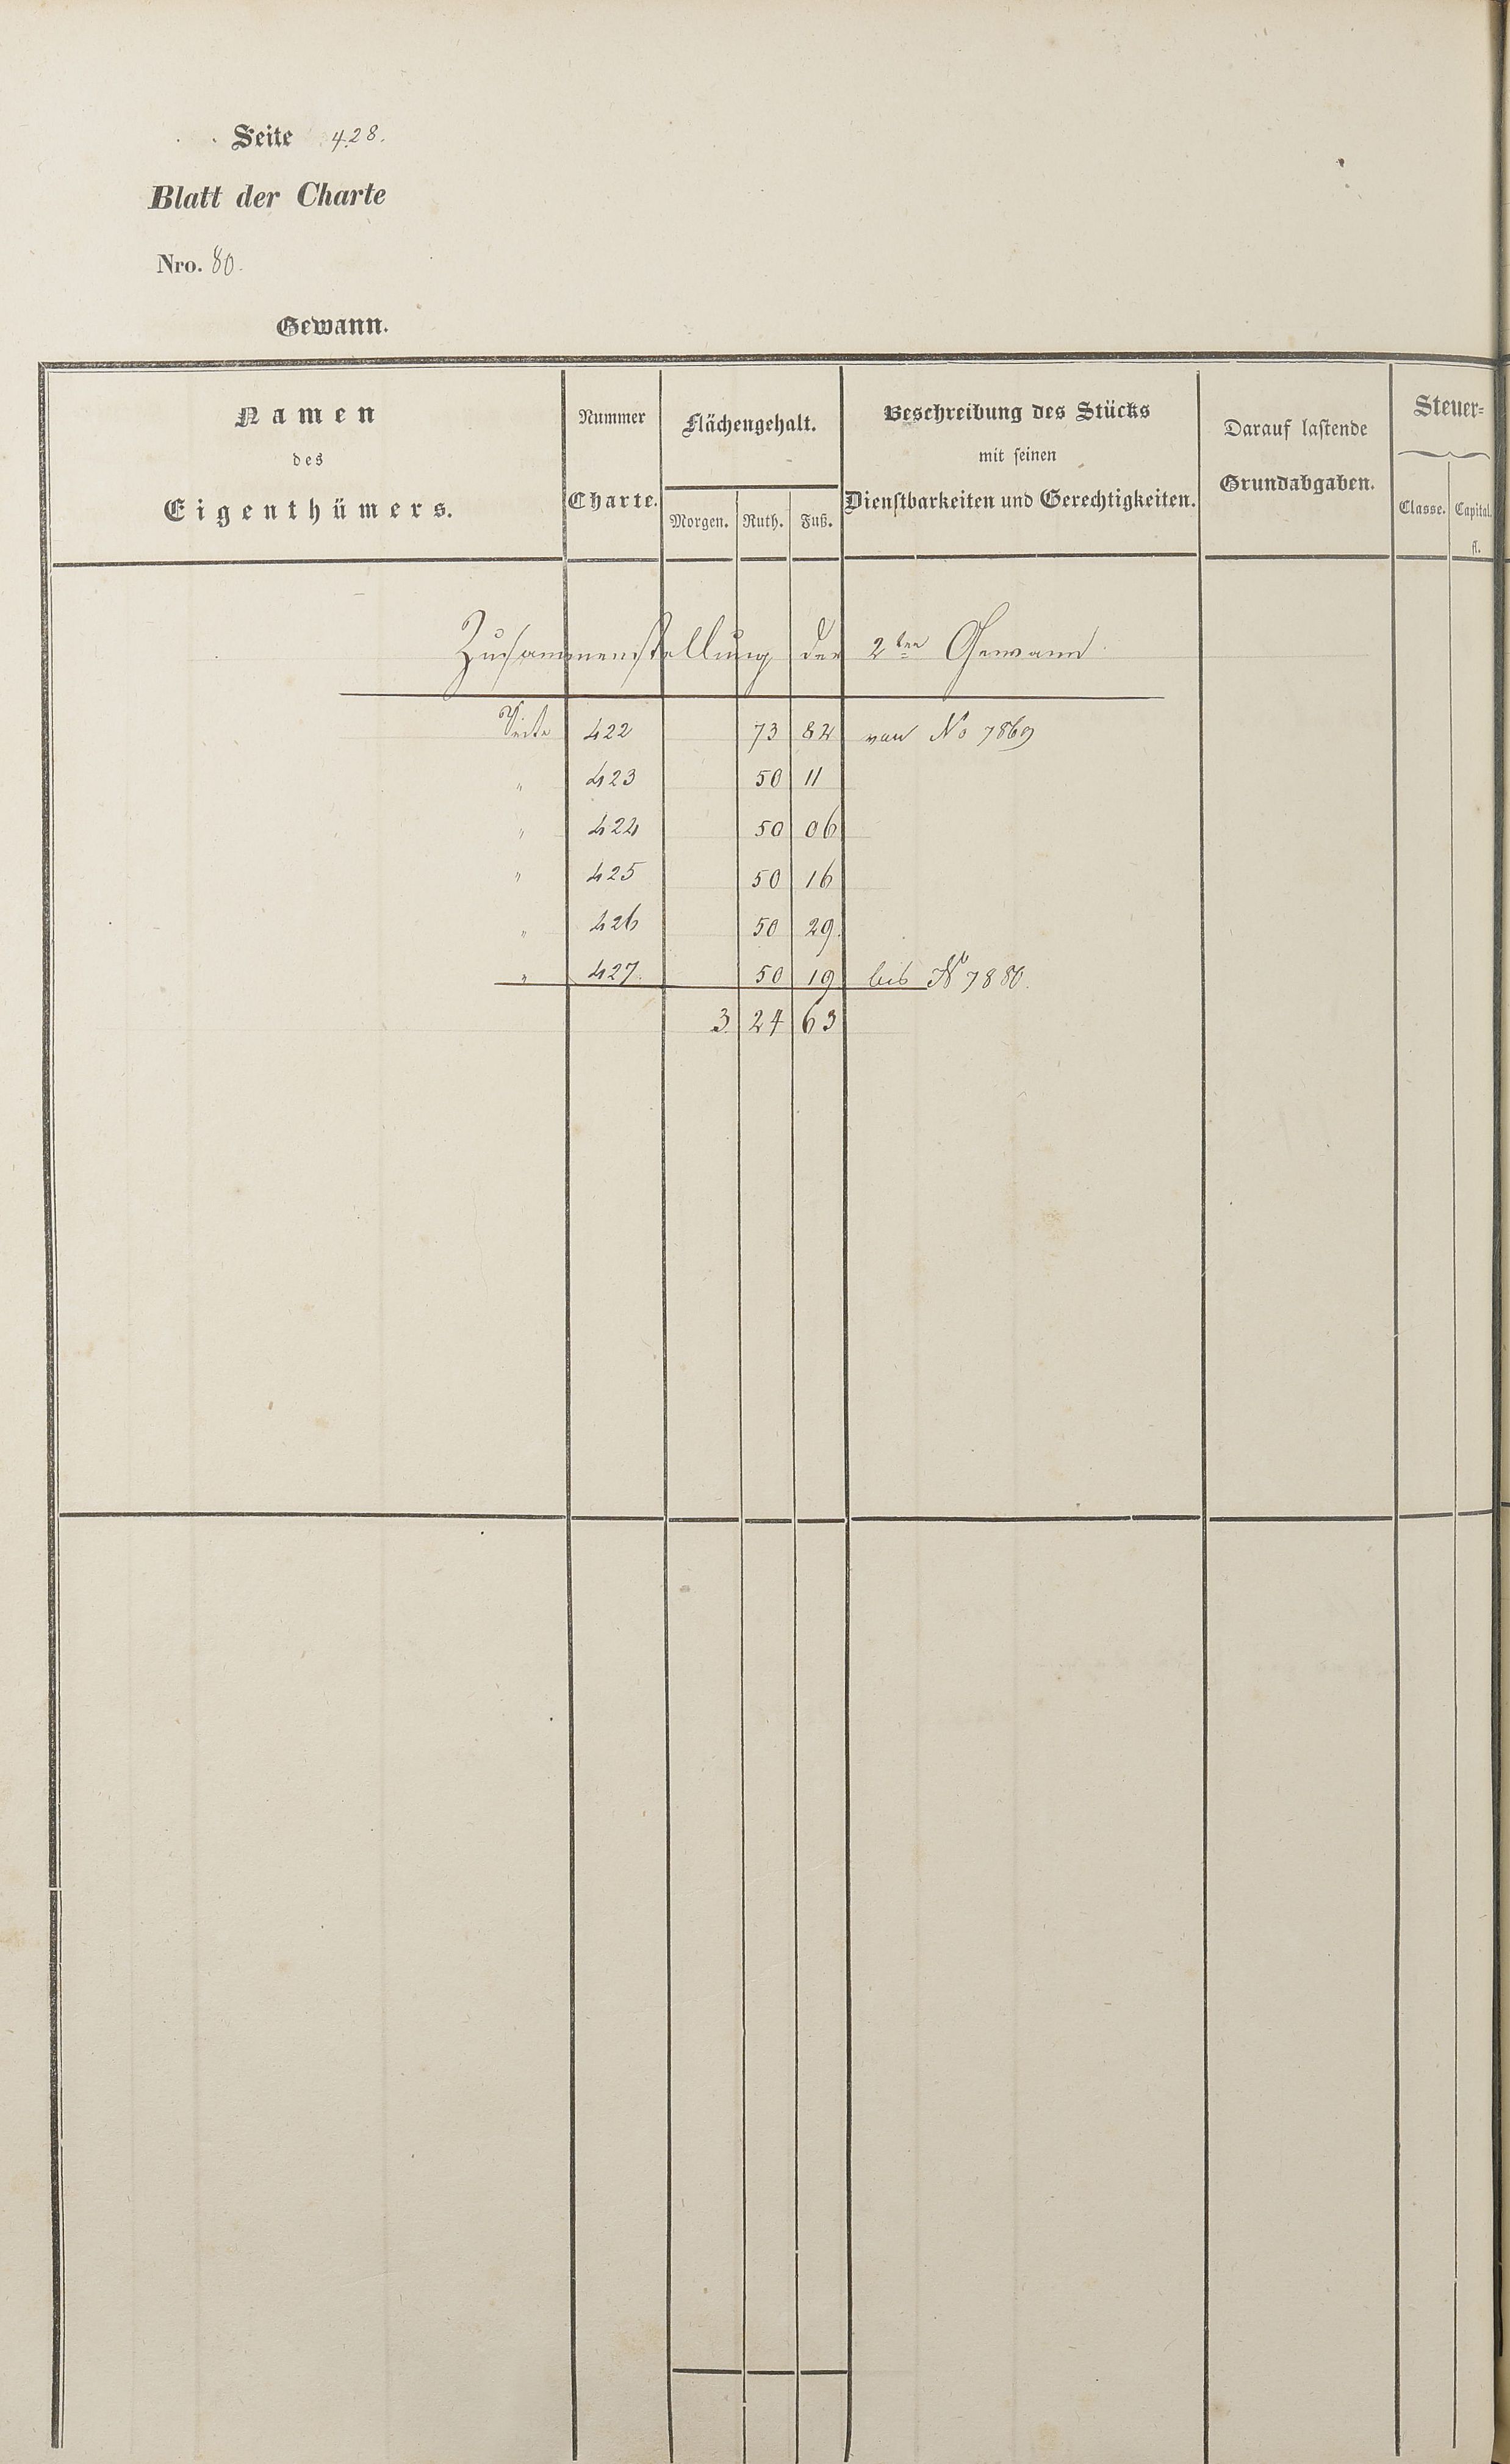 Seite 428.
Blatt der Charte
Nro. 80.
Gewann.
Namen des Eigenthümers.
Nummer Charte.
Flächengehalt.
Morgen. Ruth. Fuß.
Beschreibung des Stücks
mit seinen
Dienstbarkeiten und Gerechtigkeiten.
Darauf lastende
Grundabgaben.
Steuer=
Classe. Capital.
fl.
Zusammenstellung der 2ten Gewann
Seite 422 73 82 von No 7869
" 423 50 11
" 424 50 06
" 425 50 16
" 426 50 29.
" 427. 50 19 bis No 7880.
3 24 63